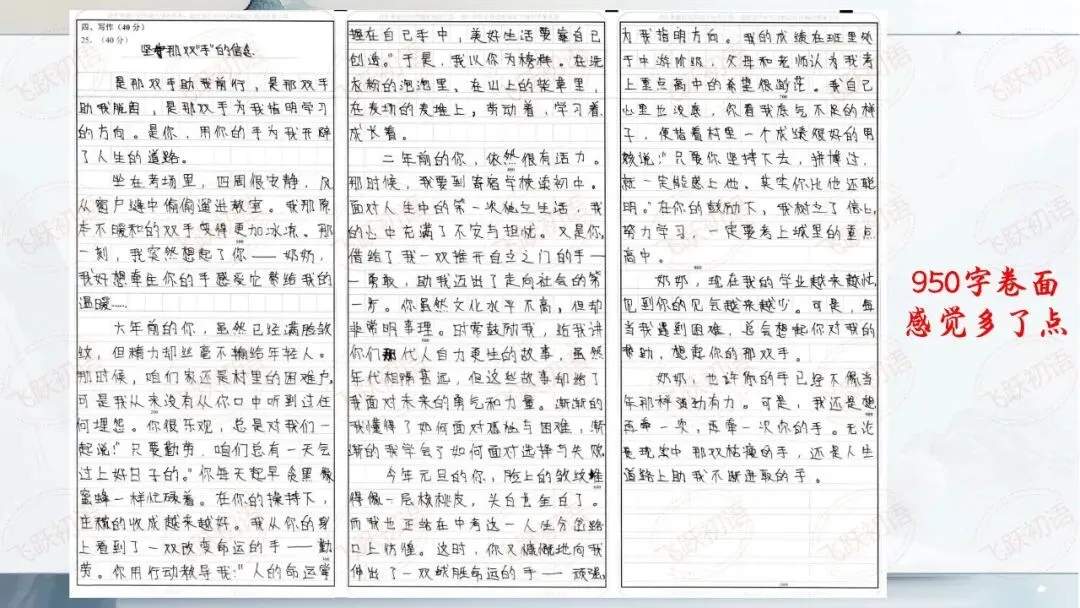 四、写作(40分)
25.(40分)
坚守那双“手”的信念
是那双手助我前行,是那双手
助我脱困,是那双手为我指明学习
的方向。是你,用你的手为我开辟
了人生的道路。
坐在考场里,四周很安静,风
从窗户缝中偷偷溜进教室。我那原
本不暖和的双手变得更加冰凉。那
一刻,我突然想起了你——奶奶,
我好想牵住你的手感受它带给我的
温暖……
六年前的你,虽然已经满脸皱
纹,但精力却丝毫不输给年轻人。
那时候,咱们家还是村里的困难户,
可是我从来没有从你口中听到过任
何埋怨。你很乐观,总是对我们一
起说:“只要勤劳,咱们总有一天会
过上好日子的。”你每天起早贪黑像
蜜蜂一样忙碌着。在你的操持下,
庄稼的收成越来越好。我从你的身
上看到了一双改变命运的手——勤
劳。你用行动教导我:“人的命运掌
握在自己手中,美好生活要靠自己
创造。”于是,我以你为榜样。在洗
衣粉的泡泡里、在山上的柴草里,
在农场的麦堆上,劳动着,学习着,
成长着。
二年前的你,依然很有活力。
那时候,我要到寄宿学校读初中。
面对人生中的第一次独立生活,我
的心中充满了不安与担忧。又是你,
借给了我一双推开自立之门的手—
—勇敢,助我迈出了走向社会的第
一步。你虽然文化水平不高,但却
非常明事理。时常鼓励我,给我讲
你们那代人自力更生的故事,虽然
年代相隔甚远,但这些故事却给了
我面对未来的勇气和力量。渐渐的
我懂得了如何面对孤独与困难,渐
渐的我学会了如何面对选择与失败
今年元旦的你,脸上的皱纹堆
得像一层核桃皮,头白甚至白了。
而我也正站在中考这一人生分岔路
口上彷徨。这时,你又慷慨地向我
伸出了一双战胜命运的手——顽强,
为我指明方向。我的成绩在班里处
于中游阶级,父母和老师认为我考
上重点高中的希望很渺茫。我自己
心里也没底,你看我底气不足的样
子,便指着村里一个成绩很好的男
娃说:“只要你坚持下去,拼搏过,
就一定能赶上他。其实你比他还聪
明。”在你的鼓励下,我树立了信心,
努力学习,一定要考上城里的重点
高中。
奶奶,现在我的学业越来越忙,
见到你的见气越来越少。可是,每
当我遇到困难,总会想起你对我的
帮助,想起你的那双手。
奶奶,也许你的手已经不像当
年那样强劲有力。可是,我还是想
再牵一次,再牵一次你的手。无论
是现实中那双枯瘦的手,还是人生
道路上助我不断进取的手。
950字卷面
感觉多了点